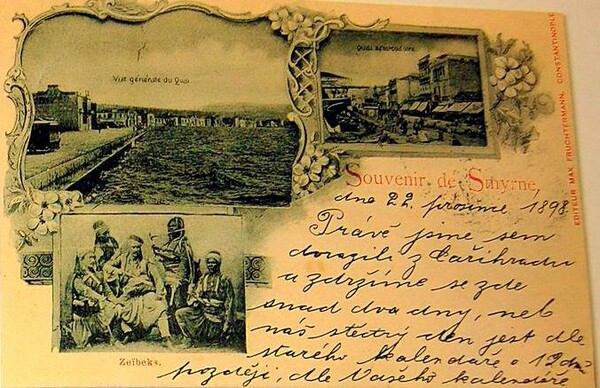 Vue générale du Quai
EDITEUR MAX FRUCHTERMANN, CONSTANTINOPLE
Souvenir de Smyrne
dne 22. prosince 1898
Právě jsme sem
dorazili z Cařihradu
a zdržíme se zde
snad dva dny, neb
náš štědrý den jest dle
starého kalendáře o 12 dní
později, dle Vašeho kalendáře
Zeïbeks.